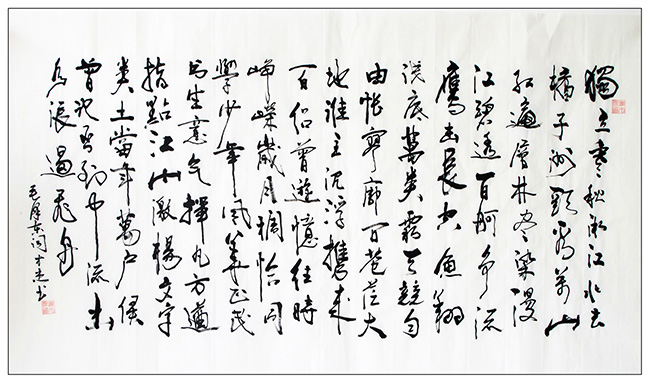 獨立寒秋湘江北去
橘子洲頭看萬山
紅遍層林盡染漫
江碧透百舸爭流
鷹击長空魚翔
淺底萬类霜天競自
由悵寥廓问蒼茫大
地誰主沉浮攜來
百侣曾遊憶往時
崢嶸歲月稠恰同
學少年風華正茂
书生意气揮斥方遒
指點江山激揚文字
糞土當年萬户侯
曾记否到中流击
水浪遏飛舟
毛澤東詞 书